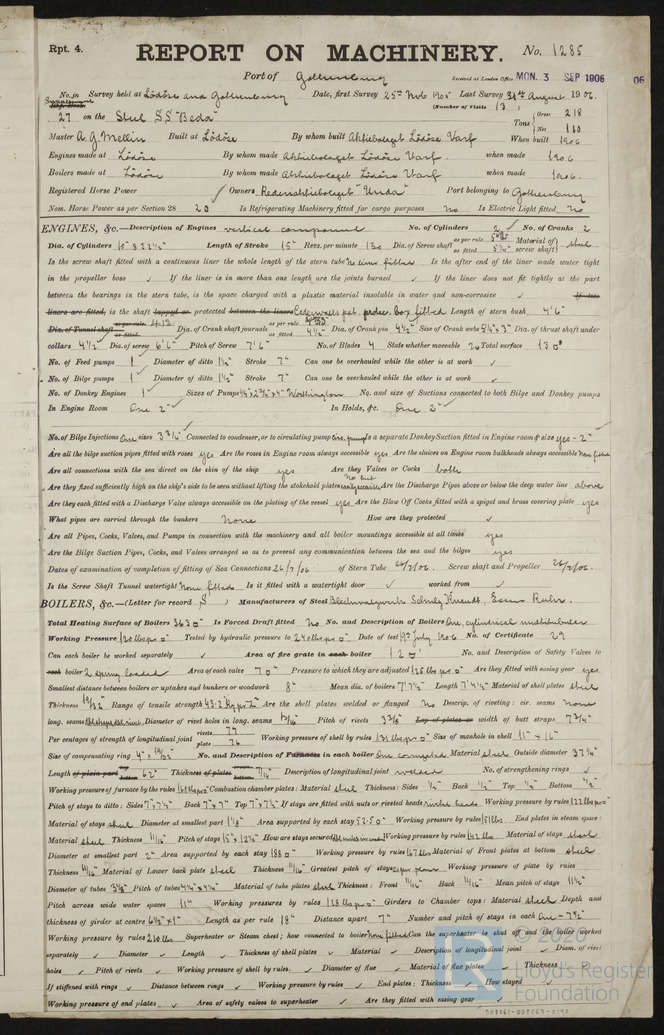 Rpt. 4.
REPORT ON MACHINERY.
No. 1285
Port of Gothenburg
Received at London Office MON. 3 SEP 1906
06
No. in Survey held at Lödöse and Gothenburg Date, first Survey 25th Nov 1905 Last Survey 31st August 1906
(Number of Visits 13)
27 on the Steel S.S. "Beda"
Tons Gross 218
Net 110
Master A. G. Mellin Built at Lödöse By whom built Aktiebolaget Lödöse Varf When built 1906
Engines made at Lödöse By whom made Aktiebolaget Lödöse Varf. when made 1906
Boilers made at Lödöse By whom made Aktiebolaget Lödöse Varf. when made 1906.
Registered Horse Power Owners Rederiaktiebolaget "Unda" Port belonging to Gothenburg
Nom. Horse Power as per Section 28 20 Is Refrigerating Machinery fitted for cargo purposes No Is Electric Light fitted No
ENGINES, &c.—Description of Engines vertical compound No. of Cylinders 2 No. of Cranks 2
Dia. of Cylinders Length of Stroke 15" Revs. per minute 130 Dia. of Screw shaft as per rule as fitted 5 1/4" Material of screw shaft steel
Is the screw shaft fitted with a continuous liner the whole length of the stern tube No liner fitted Is the after end of the liner made water tight
in the propeller boss ✓ If the liner is in more than one length are the joints burned ✓ If the liner does not fit tightly at the part
between the bearings in the stern tube, is the space charged with a plastic material insoluble in water and non-corrosive ✓ If two
liners are fitted, is the shaft lapped or protected between the liners Cederwalls pat. protec. box fitted Length of stern bush 4'6"
Dia. of Tunnel shaft as per rule as fitted Dia. of Crank shaft journals as per rule as fitted 4 1/2" Dia. of Crank pin 4 1/2" Size of Crank webs Dia. of thrust shaft under
collars 4 1/2" Dia. of screw 6'6" Pitch of Screw 7'6" No. of Blades 4 State whether moveable No Total surface
No. of Feed pumps 1 Diameter of ditto 1 1/2" Stroke 7" Can one be overhauled while the other is at work ✓
No. of Bilge pumps 1 Diameter of ditto 1 1/2" Stroke 7" Can one be overhauled while the other is at work ✓
No. of Donkey Engines 1 Sizes of Pumps Worthington No. and size of Suctions connected to both Bilge and Donkey pumps
In Engine Room One 2" In Holds, &c. One 2"
No. of Bilge Injections One sizes 3 3/4" Connected to condenser, or to circulating pump Is a separate Donkey Suction fitted in Engine room & size yes - 2"
Are all the bilge suction pipes fitted with roses yes Are the roses in Engine room always accessible yes Are the sluices on Engine room bulkheads always accessible None fitted
Are all connections with the sea direct on the skin of the ship yes Are they Valves or Cocks both
Are they fixed sufficiently high on the ship's side to be seen without lifting the stokehold plates No but easily accessible Are the Discharge Pipes above or below the deep water line above
Are they each fitted with a Discharge Valve always accessible on the plating of the vessel yes Are the Blow Off Cocks fitted with a spigot and brass covering plate yes
What pipes are carried through the bunkers None How are they protected ✓
Are all Pipes, Cocks, Valves, and Pumps in connection with the machinery and all boiler mountings accessible at all times yes
Are the Bilge Suction Pipes, Cocks, and Valves arranged so as to prevent any communication between the sea and the bilges yes
Dates of examination of completion of fitting of Sea Connections 26/7/06 of Stern Tube 26/7/06 Screw shaft and Propeller 26/7/06.
Is the Screw Shaft Tunnel watertight None fitted Is it fitted with a watertight door ✓ worked from ✓
BOILERS, &c.—(Letter for record S) Manufacturers of Steel Blechwalzwerk Schulz Knaudt, Essen Ruhr.
Total Heating Surface of Boilers Is Forced Draft fitted No No. and Description of Boilers One, cylindrical multitubular
Working Pressure 120 lbs pr □" Tested by hydraulic pressure to 240 lbs pr □" Date of test 19th July 1906 No. of Certificate 29
Can each boiler be worked separately ✓ Area of fire grate in each boiler No. and Description of Safety Valves to
each boiler 2 spring loaded Area of each valve Pressure to which they are adjusted 125 lbs pr □" Are they fitted with easing gear yes
Smallest distance between boilers or uptakes and bunkers or woodwork 8" Mean dia. of boilers Length Material of shell plates steel
Thickness 19/32" Range of tensile strength Are the shell plates welded or flanged No Descrip. of riveting: cir. seams None
long. seams Diameter of rivet holes in long. seams Pitch of rivets Lap of plates or width of butt straps 7 3/4"
Per centages of strength of longitudinal joint rivets 77 plate 76 Working pressure of shell by rules 131 lbs pr □" Size of manhole in shell 11" x 16"
Size of compensating ring No. and Description of Furnaces in each boiler One corrugated Material steel Outside diameter 37 1/4"
Length of plain part top bottom 62" Thickness of plates crown bottom 7/16" Description of longitudinal joint welded No. of strengthening rings ✓
Working pressure of furnace by the rules Combustion chamber plates: Material steel Thickness: Sides 1/2" Back 1/2" Top 1/2" Bottom 1/2"
Pitch of stays to ditto: Sides Back 7"x7" Top If stays are fitted with nuts or riveted heads rivted heads Working pressure by rules 122 lbs pr □"
Material of stays steel Diameter at smallest part 1 1/8" Area supported by each stay Working pressure by rules 151 lbs End plates in steam space:
Material steel Thickness 11/16" Pitch of stays How are stays secured Working pressure by rules 142 lbs Material of stays steel
Diameter at smallest part 2" Area supported by each stay Working pressure by rules 167 lbs Material of Front plates at bottom steel
Thickness 11/16" Material of Lower back plate steel Thickness 11/16" Greatest pitch of stays Working pressure of plate by rules
Diameter of tubes Pitch of tubes Material of tube plates steel Thickness: Front 11/16" Back 11/16" Mean pitch of stays
Pitch across wide water spaces 11" Working pressures by rules 128 lbs pr □" Girders to Chamber tops: Material steel Depth and
thickness of girder at centre Length as per rule 18" Distance apart 7" Number and pitch of stays in each One - 7 1/2"
Working pressure by rules 210 lbs Superheater or Steam chest; how connected to boiler None fitted Can the superheater be shut off and the boiler worked
separately ✓ Diameter ✓ Length ✓ Thickness of shell plates ✓ Material ✓ Description of longitudinal joint ✓ Diam. of rivet
holes ✓ Pitch of rivets ✓ Working pressure of shell by rules ✓ Diameter of flue ✓ Material of flue plates ✓ Thickness
If stiffened with rings ✓ Distance between rings ✓ Working pressure by rules ✓ End plates: Thickness ✓ How stayed ✓
Working pressure of end plates ✓ Area of safety valves to superheater ✓ Are they fitted with easing gear ✓
© 2020
Lloyd's Register
Foundation